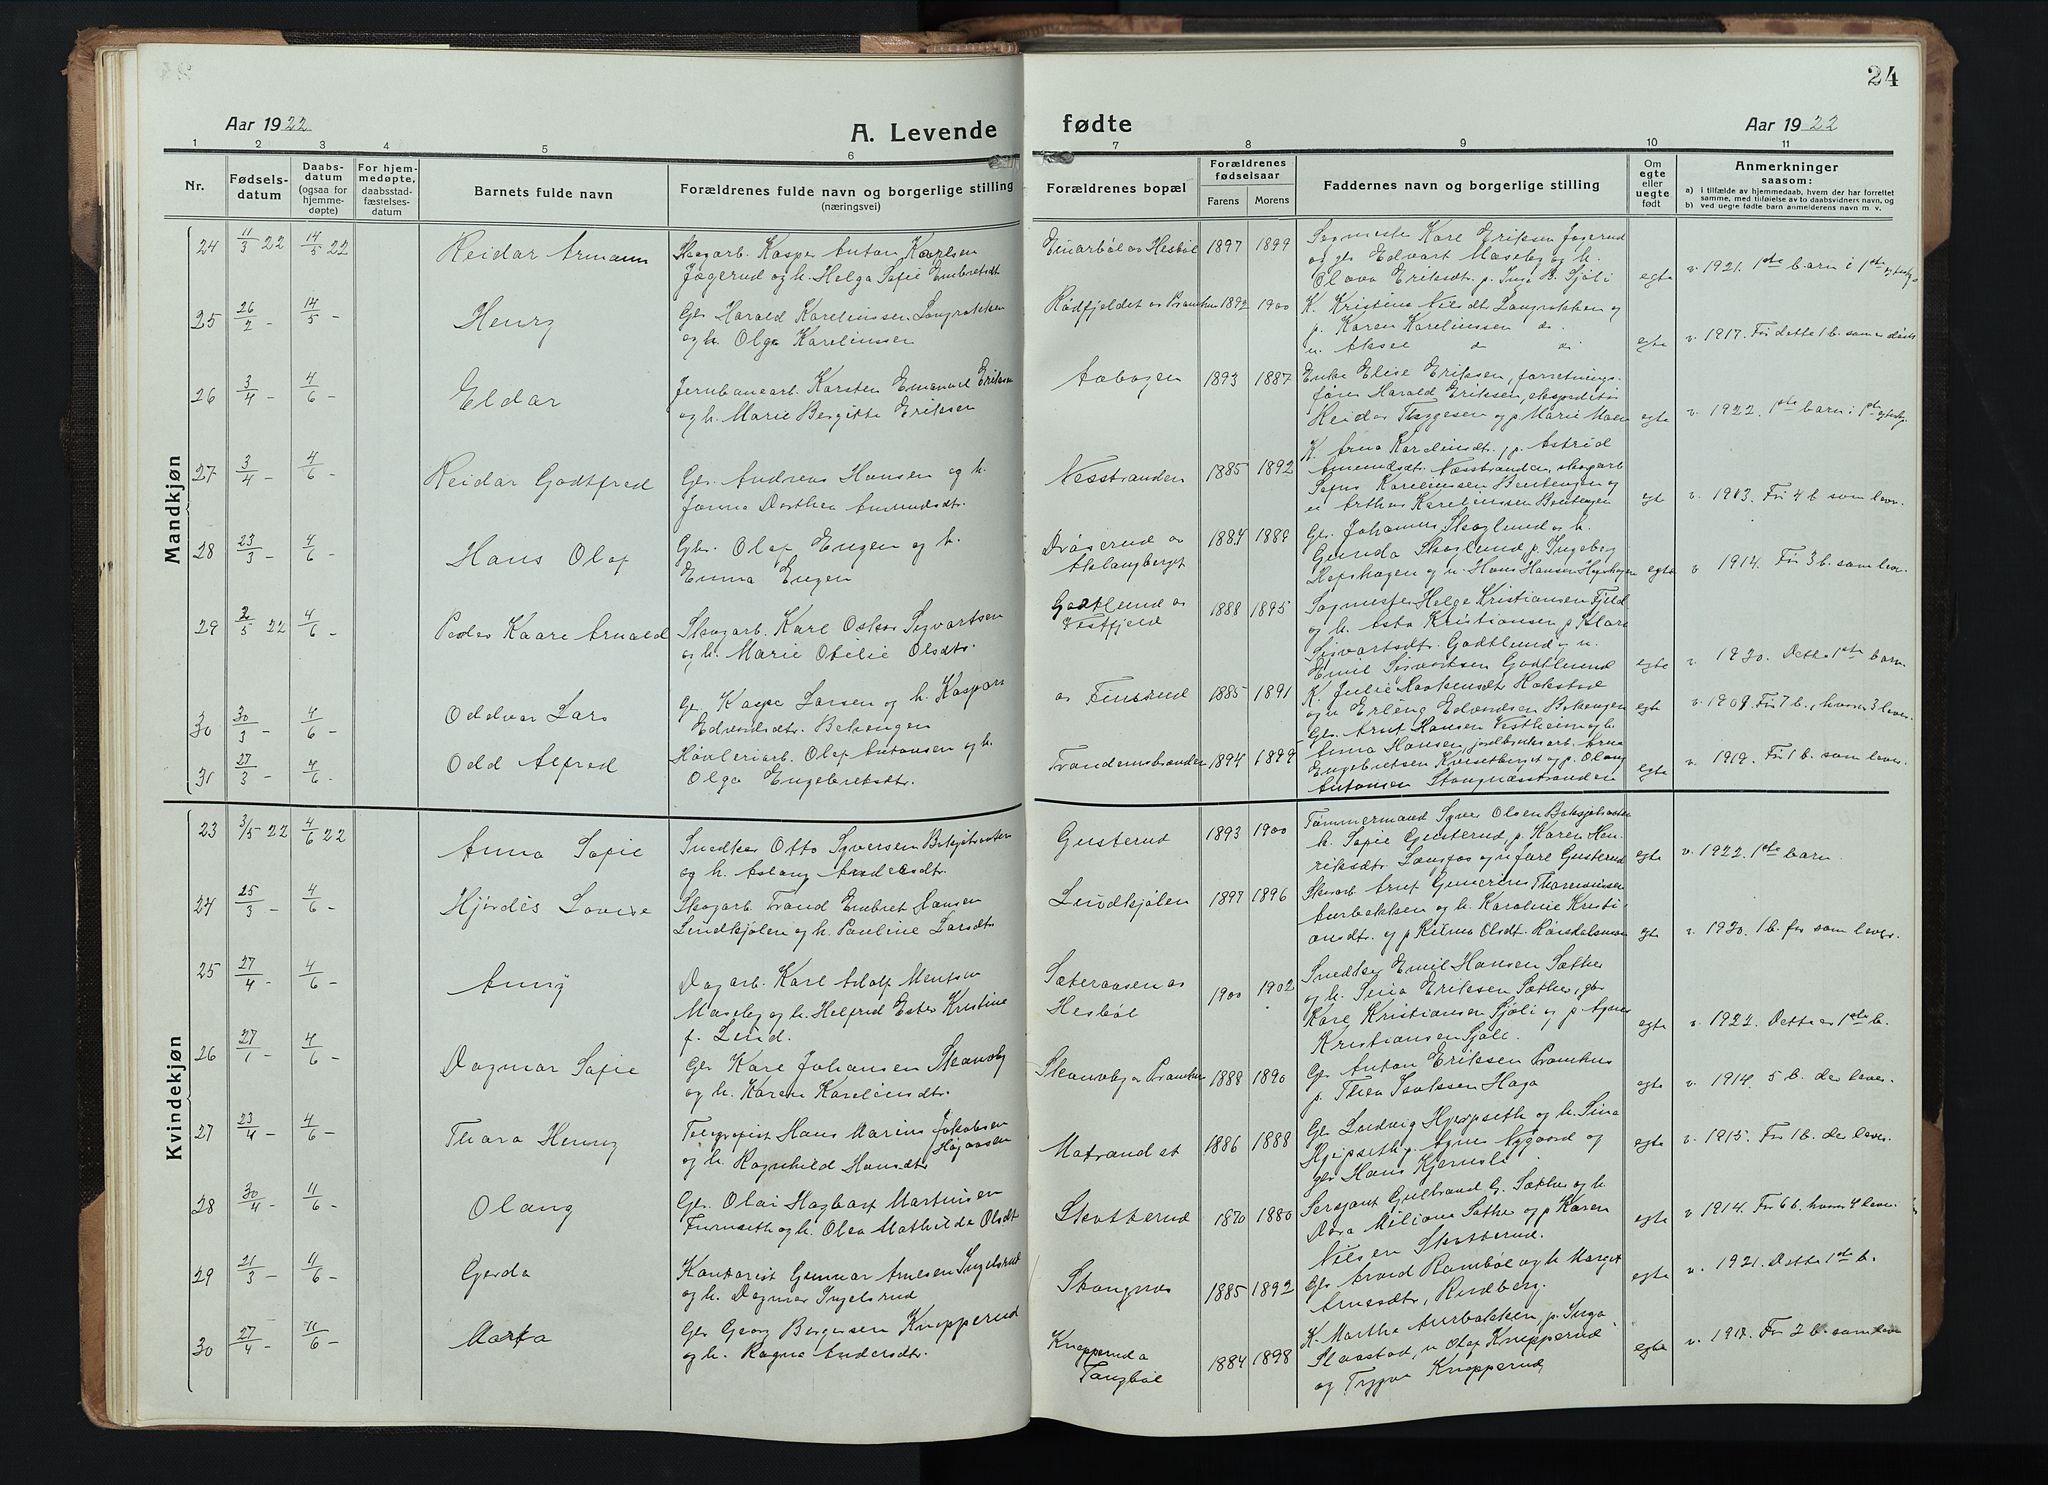 24
Aar 1922 A. Levende fødte Aar 1922
1 2 3 4 5 6 7 8 9 10 11
Nr. Fødselsdatum Daabsdatum (ogsaa for hjemmedøpte) For hjemmedøpte, daabsstadfæstelsesdatum Barnets fulde navn Forældrenes fulde navn og borgerlige stilling (næringsvei) Forældrenes bopæl Forældrenes fødselsaar Farens Morens Faddernes navn og borgerlige stilling Om egte eller uegte født Anmerkninger saasom:
a) i tilfælde av hjemmedaab, hvem der har forrettet samme, med tilføielse av to daabsvidners navn, og
b) ved uegte fødte barn anmelderens navn m. v.
Mandkjøn
24 11/3 22 14/5 22 Reidar Armann Skogarb. Kasper Anton Karlsen
Jøgerud og h. Helga Sofie Embretsdt
Einarbøl av Hesbøl 1897 1899 Sagmester Karl Eriksen Jøgerud
og gbr Edvart Maseby og h.
Olava Eriksdt. p. Inga B. Sjøli egte v. 1921. 1ste barn i 1ste egtesk.
25 26/2 - 14/5 - Henry Gbr Harald Karelinssen Langrakken
og h. Olga Karelinssen
Rødfjeldet av Bramhus 1892 1900 K. Kristine Nilsdt Langrakken og
p. Karen Karelinssen do.
u. Aksel do do egte v. 1917. Før dette 1 b. som er død
26 3/4 - 4/6 - Eldar Jernbanearb. Karsten Emanuel Eriksen
og h. Marie Bergitte Eriksen
Aabogen 1893 1887 Enke Elise Eriksen, forretnings-
fører Harald Eriksen, ekspeditør
Reidar Tryggesen og p Marie Moen egte v. 1922. 1ste barn i 1ste egtesk.
27 3/4 - 4/6 - Reidar Godtfred Gbr. Andreas Hansen og h.
Janna Dorthea Amundsdt.
Nesstranden 1885 1892 K. Arna Karelinsdt. p. Astrid
Amundsdt. Næsstranden, skogarb
Sofus Karelinssen Benhengen og
u Arthur Karelinssen Benhengen egt v. 1913. Før 4 b som lever
28 23/3 - 4/6 - Hans Olaf Gbr. Olaf Engen og h.
Emma Engen
Drøserud av
Aslangberget 1884 1889 Gbr. Johannes Skoglund og h.
Gunda Skoglund p. Ingeborg
Repshagen og u. Hans Hansen Repshagen egte v 1914. Før 3 b. som lever
29 2/5 22 4/6 - Peder Kaare Arnold Skogarb. Karl Oskar Sigvartsen
og h. Marie Otelie Olsdtr.
Godtlund av
Vestfjeld 1888 1895 Sagmester Helge Kristiansen Fjeld
og h. Asta Kristiansen p. Klara
Sigvartsdt. Godtlund og u.
Emil Sigvartsen Godtlund egte v. 1920. Dette 1ste barn
30 30/3 - 4/6 - Oddvar Lars Gbr. Kaspe Larsen og h. Kaspara
Edvardsdtr. Bekengen
av Finsrud 1885 1891 K. Julie Haakensdtr Hokstad
og u Erling Edvardsen Bekengen egte v. 1909. Før 7 b., hvorav 3 lever
31 27/3 - 4/6 - Odd Alfred Høvleriarb. Olaf Antonsen og h.
Olga Engebretsdtr.
Trandemstranden 1894 1899 Gbr. Arnt Hansen Vestheim og h.
Anna Hansen, jordbruksarb. Arne
Engebretsen Kvisetberget og p. Olaug
Antonsen Skangnæsstranden egte v. 1919. Før 1 b. som lever.
Kvindekjøn
23 3/5 22 4/6 22 Anna Sofie Snedker Otto Syversen Bekjehaaten
og h. Aslaug Andersdtr.
Gusterud 1893 1900 Tømmermand Syver Olsen
h. Sofie Gusterud p. Karen Hen-
riksdtr. Langfos og u Jarl Gusterud egte v. 1922. 1ste barn.
24 25/3 - 4/6 - Hjørdis Lovise Skogarb. Trond Embret Hansen
Lindkjølen og h. Pauline Larsdtr
Lindkjølen 1897 1896 Skogarb Arnt Gunerius Thorvaldsen
Aurbekken og h. Karoline Kristi-
ansdtr. og p Kitma Olsdt. egte v. 1920. 1 b. før som lever.
25 27/4 - 4/6 - Anny Dagarb. Karl Adolf Mentsen
Maseby og h. Helfrid Ester Kristine
f. Lind.
Sæteraasen av
Hesbøl 1900 1902 Snedker Emil Hansen Sæther
og h. Sena Eriksen Sæther, gbr
Karl Kristiansen Sjøli og p Agnes
Kristiansen Sjøli. egte v. 1922. Dette er 1ste b.
26 27/1 - 4/6 - Dagmar Sofie Gbr Karl Johansen Skansby
og h. Karen Karelinsdtr.
Skansby av Bramhus 1888 1890 Gbr Anton Eriksen Bramhus
p. Thea Isaksen Haga egte v. 1914. 5 b. der lever
27 23/4 - 4/6 - Thora Henny Telegrafist Hans Marius Jakobsen
og h. Ragnhild Hansdtr Høiaasen
Matrand st 1886 1888 Gbr Ludvig Hjerpseth og h. Sina
Hjerpseth p. Agnes Nygaard og
gbr Hans Kjernsli egte v. 1915. Før 1 b. der lever.
28 30/4 - 11/6 - Olaug Gbr. Olai Hagbart Martinsen
Furuseth og h. Olea Mathilde Olsdt
Skotterud 1870 1880 Sersjant Gulbrand G. Sæther og h.
Dora Miliane Sæther og p Karen
Nilsen Skotterud. egte v 1914. Før 6 b. hvorav 4 lever
29 21/3 - 11/6 - Gerda Kontorist Gunnar Arnesen Ingelsrud
og h. Dagmar Ingelsrud
Skangnæs 1885 1892 Gbr Arvid Rambøl og h Marget
Arnesdtr, Rundberg. egte v. 1921. Dette 1ste b.
30 27/4 - 11/6 - Marta Gbr Georg Bergersen Knapperud
og h. Ragna Andersdtr.
Knapperud av
Tangbøl 1884 1898 K. Marthe Aurbakken, p. Inga
Slaastad, u Olaf Knapperud
og Trygve Knapperud egte v. 1917. Før 2 b. som lever